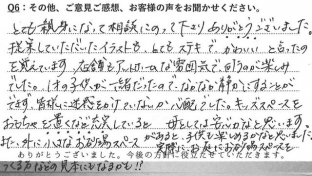 Q6：その他、ご意見ご感想、お客様の声をお聞かせください。
とても親身になって相談にのって下さりありがとうございました。
提案していただいたイラストも、とてもステキで、かわいい と思ったの
を覚えています。店舗もアットホームな雰囲気で、伺うのが楽しみ
でした。1才の子供が一緒だったので、なかなか静かにすることが
できず、皆様に迷惑をかけていないか心配でした。キッズスペースを
おもちゃを置くなど充実していると 母としては安心かなと思います。
また、外に小さなお砂場スペースがあると、子供も楽しめるかなと思いました。
実際にお庭にお砂場スペースを
ありがとうございました。今後の方針に役立たせていただきます。
つくるなどの見本にもなるかも!!